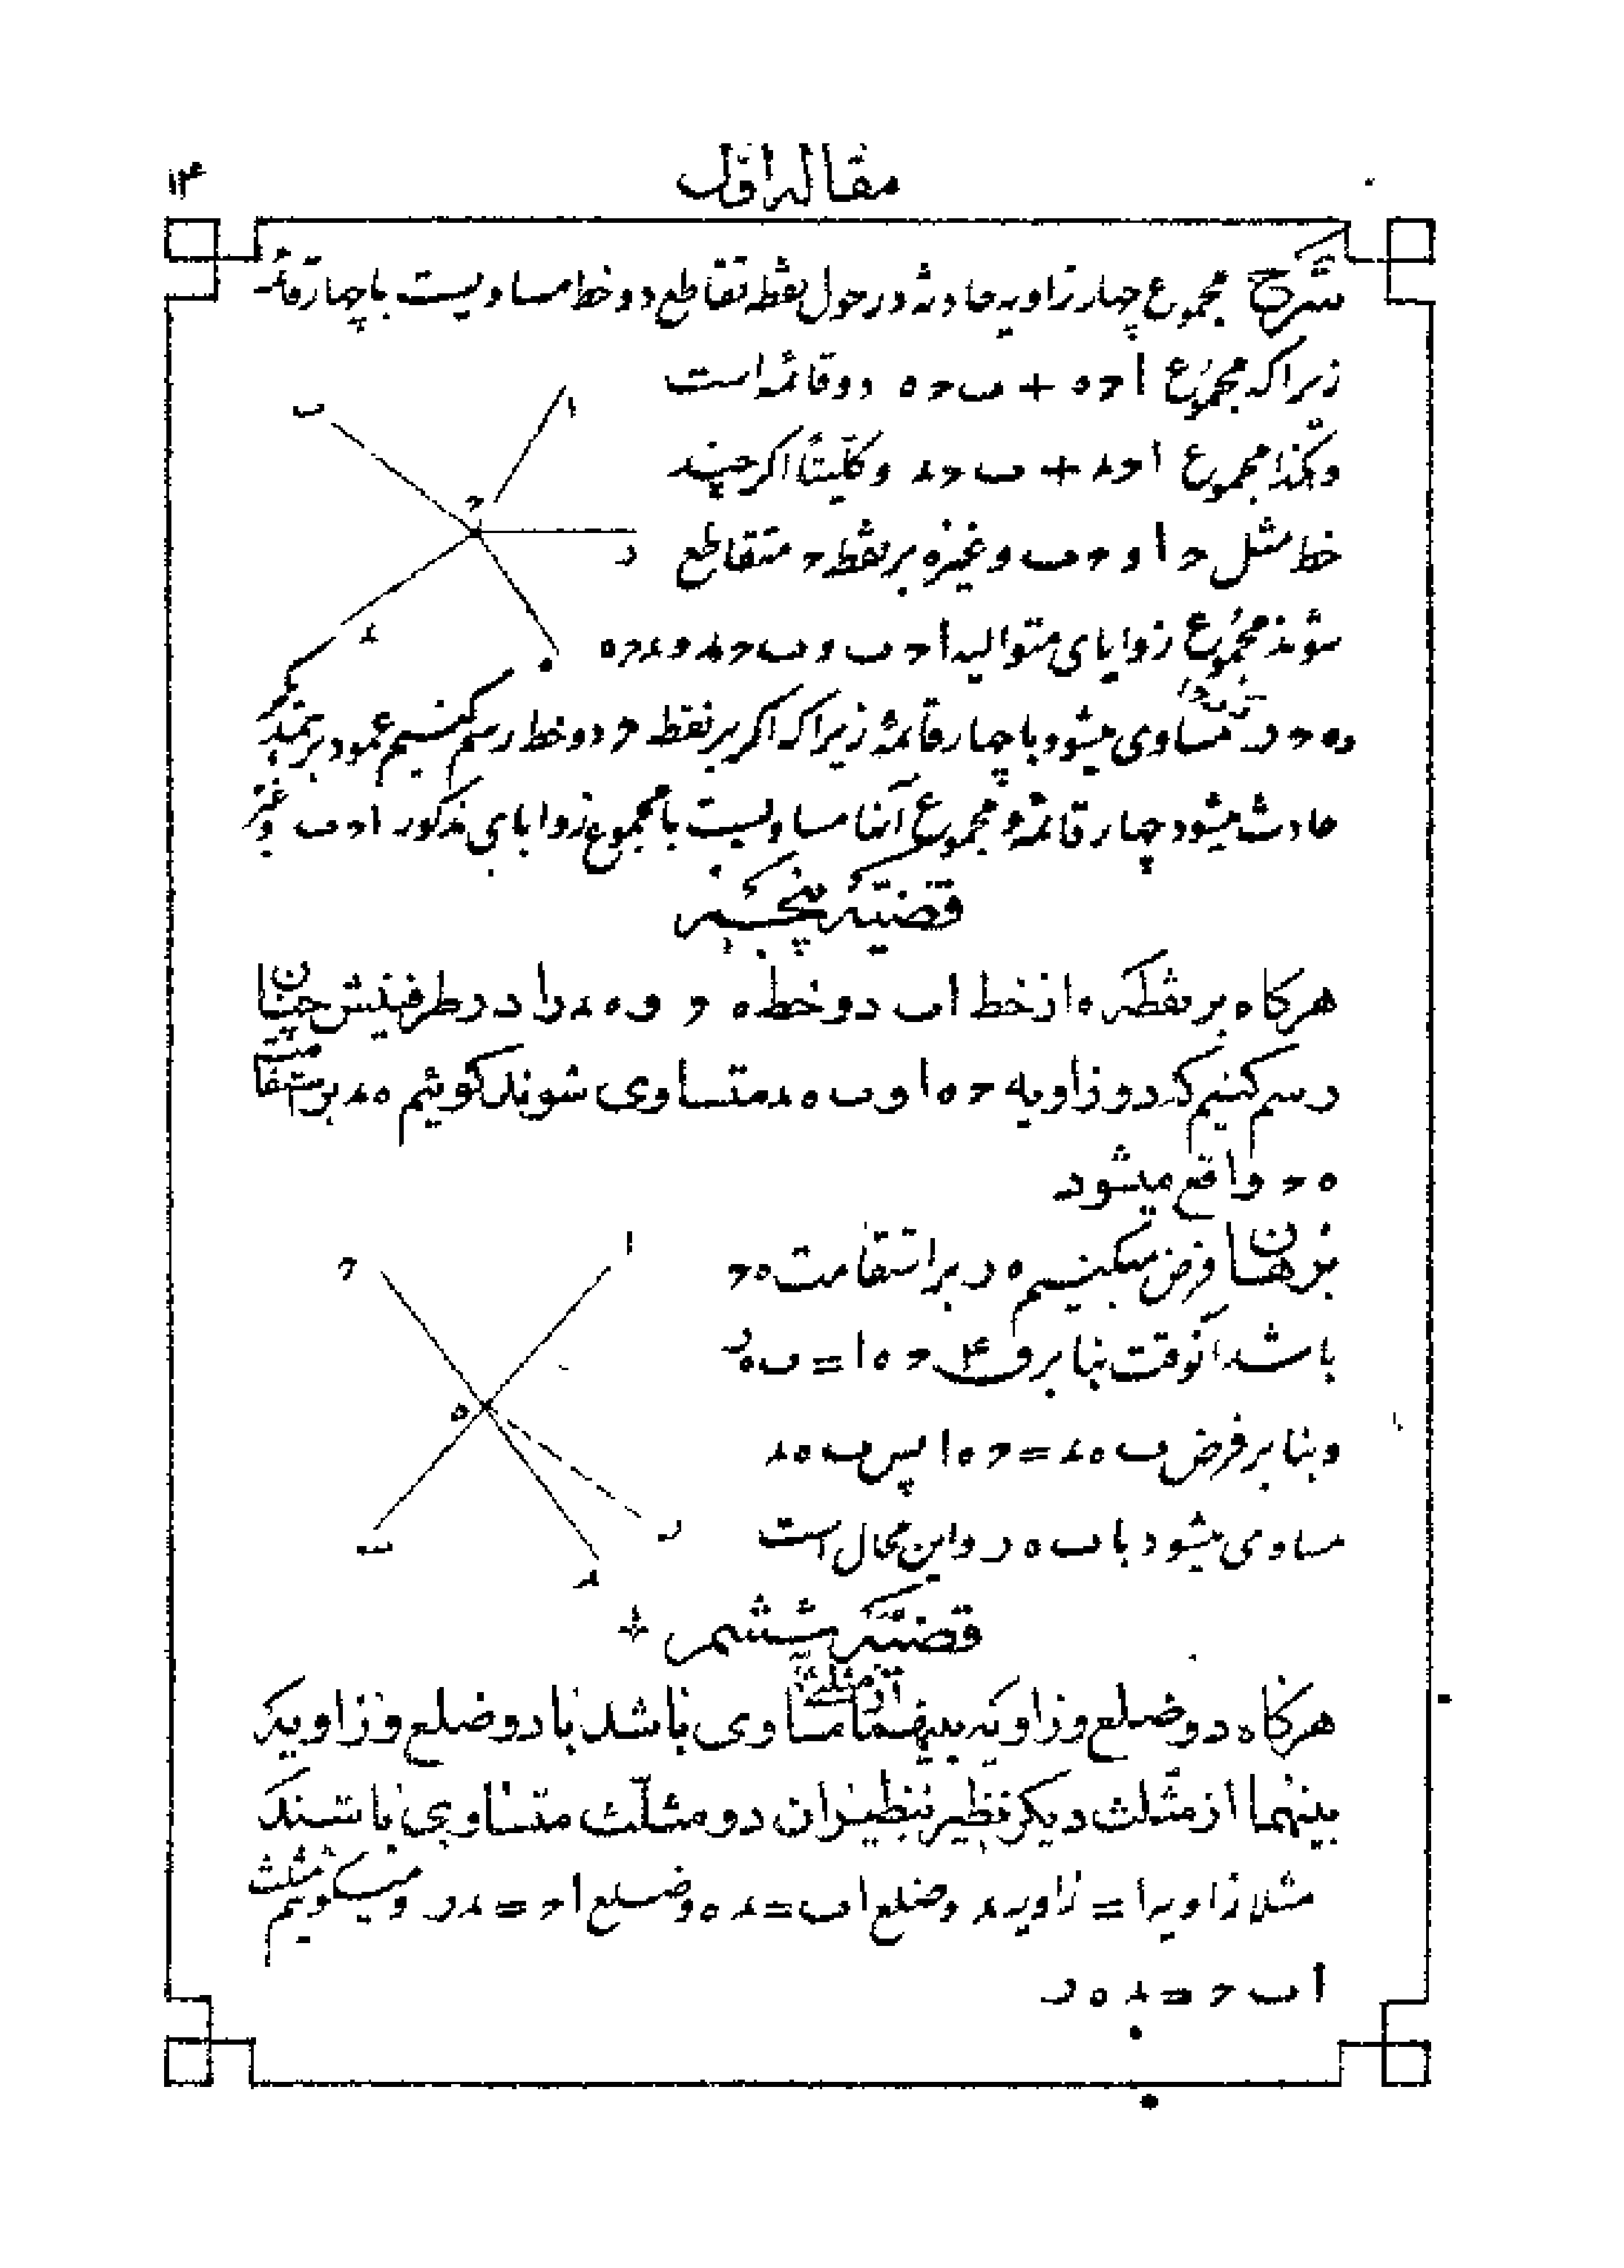 مقاله اول
۱۴
شرح مجموع چهار زاویه حادثه در حول نقطه تقاطع دو خط مساویست با چهار قائمه
زیرا که مجموع ا ح ه + ب ح ه دو قائمه است
ب
ا
و هکذا مجموع ا ح د + ب ح د و کلیتاً اگر چند
ح
خط مثل ح ا و ح ب و غیره بر نقطه ح متقاطع
ر
د
ه
شوند مجموع زوایای متوالیه ا ح ب و ب ح د و د ح ه
و ه ح ر مساوی میشود با چهار قائمه زیرا که اگر بر نقطه ح دو خط رسم کنیم عمود بر یکدیگر
حادث میشود چهار قائمه و مجموع آنها مساویست با مجموع زوایای مذکور ا ح ب و غیره
قضیه پنجم
هرگاه بر نقطه ه از خط ا ب دو خط ه ح و ه د را در طرفینش چنان
رسم کنیم که دو زاویه ح ه ا و ب ه د متساوی شوند گوئیم ه د بر استقامت
ه ح واقع میشود
برهان فرض میکنیم ه ر بر استقامت ه ح
ا
ح
باشد آنوقت بنا بر ق ۴ ح ه ا = ب ه ر
ه
و بنا بر فرض ب ه د = ح ه ا پس ب ه د
مساوی میشود با ب ه ر و این محال است
ر
ب
د
قضیه ششم
هرگاه دو ضلع و زاویه بینهما از مثلثی مساوی باشد با دو ضلع و زاویه
بینهما از مثلث دیگر نظیر بنظیر ان دو مثلث متساوی باشند
مثلا زاویه ا = زاویه د و ضلع ا ب = د ه و ضلع ا ح = د ر و میگوئیم مثلث
ا ب ح = د ه ر